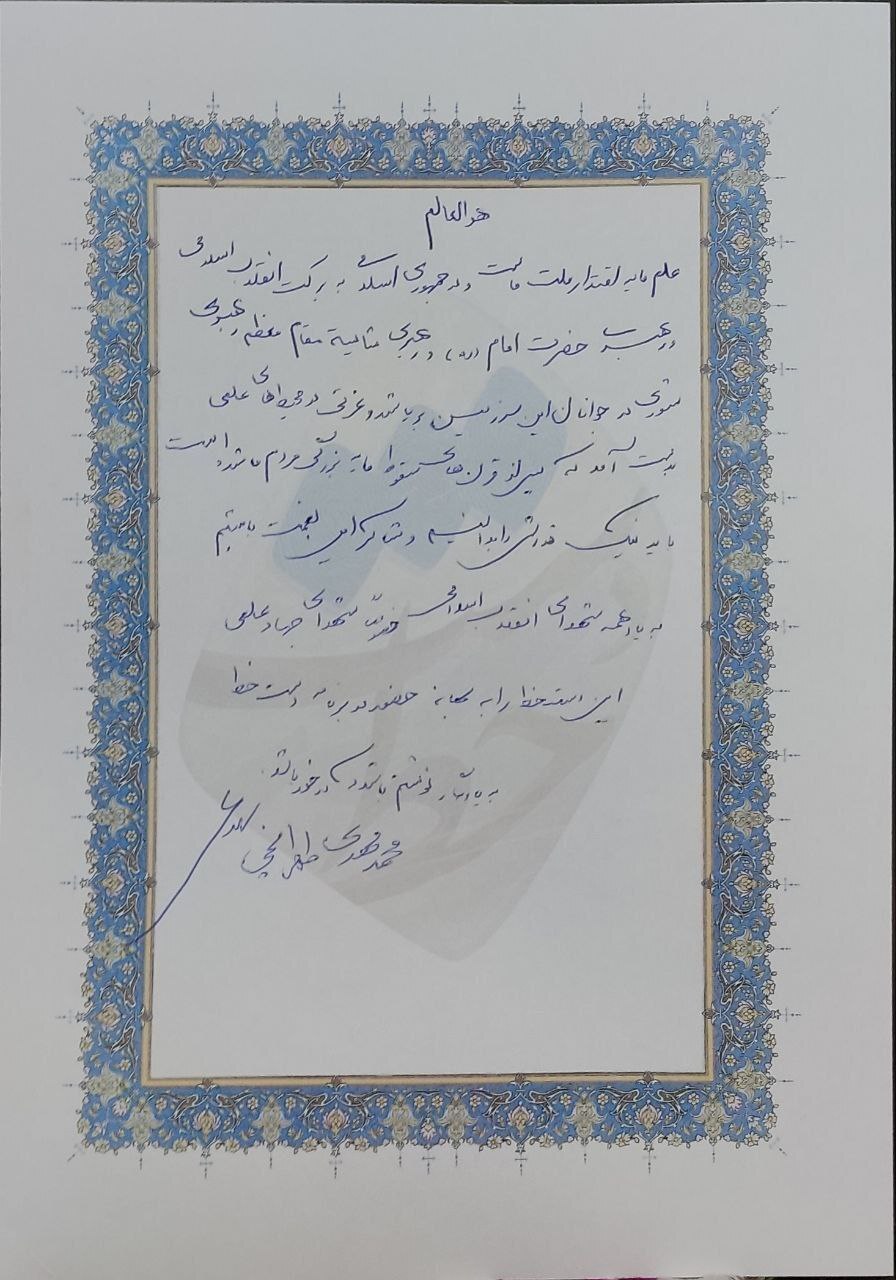 هو العالم
علم مایه اقتدار ملت ماست و در جمهوری اسلامی به برکت انقلاب اسلامی
و رهبری حضرت امام (ره) و رهبری مقام معظم رهبوی
شوری در جوانان این سرزمین برپا شد و عزتی در محیط‌های علمی
بدست آمد که پس از قرن‌های سقوط مایه بزرگی مردم ما شده است
باید نیک قدرش را بدانیم و شاکر این نعمت باشیم
به یاد همه شهدای انقلاب اسلامی خاصّه شهدای جهاد علمی
این دستخط را به بهانه حضور در برنامه دست خط
به یادگار نوشتم باشد که در خور باشد.
محمد مهدی طهرانچی